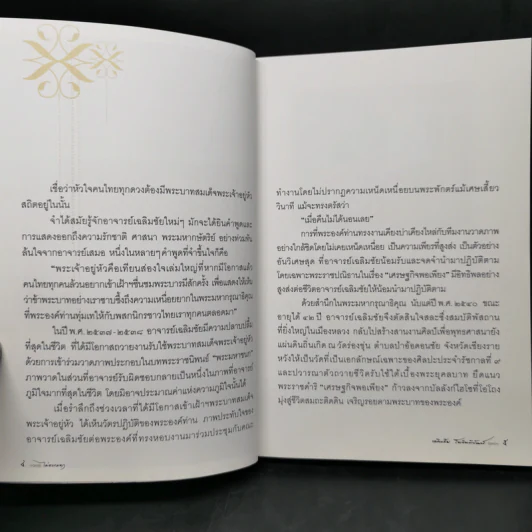 เชื่อว่าหัวใจคนไทยทุกดวงต้องมีพระบาทสมเด็จพระเจ้าอยู่หัว
สถิตอยู่ในนั้น
จำได้สมัยรู้จักอาจารย์เฉลิมชัยใหม่ๆ มักจะได้ยินคำพูดและ
การแสดงออกถึงความรักชาติ ศาสนา พระมหากษัตริย์ อย่างท่วมท้น
ล้นใจจากอาจารย์เสมอ หนึ่งในหลายๆ คำพูดที่จำขึ้นใจก็คือ
“พระเจ้าอยู่หัวคือเทียนส่องใจเล่มใหญ่ที่หากมีโอกาสแล้ว
คนไทยทุกคนล้วนอยากเข้าเฝ้าฯชื่นชมพระบารมีสักครั้ง เพื่อแสดงให้เห็น
ว่าข้าพระบาทอย่างเราซาบซึ้งถึงความเหนื่อยยากในพระมหากรุณาธิคุณ
ที่พระองค์ท่านทุ่มเทให้กับพสกนิกรชาวไทยเราทุกคนตลอดมา”
ในปี พ.ศ. ๒๕๓๗-๒๕๓๘ อาจารย์เฉลิมชัยมีความปลาบปลื้ม
ที่สุดในชีวิต ที่ได้มีโอกาสถวายงานรับใช้พระบาทสมเด็จพระเจ้าอยู่หัว
ด้วยการเข้าร่วมวาดภาพประกอบในบทพระราชนิพนธ์ “พระมหาชนก”
ภาพวาดในส่วนที่อาจารย์รับผิดชอบกลายเป็นหนึ่งในภาพที่อาจารย์
ภูมิใจมากที่สุดในชีวิต โดยมิอาจประมาณค่าแห่งความภูมิใจนั้นได้
เมื่อรำลึกถึงช่วงเวลาที่ได้มีโอกาสเข้าเฝ้าฯพระบาทสมเด็จ
พระเจ้าอยู่หัว ได้เห็นวัตรปฏิบัติของพระองค์ท่าน ภาพประทับใจของ
อาจารย์เฉลิมชัยต่อพระองค์ที่ทรงหอบงานมาร่วมประชุมกับคณะ
ทำงานโดยไม่ปรากฏความเหน็ดเหนื่อยบนพระพักตร์แม้เศษเสี้ยว
วินาที แม้จะทรงตรัสว่า
“เมื่อคืนไม่ได้นอนเลย”
การที่พระองค์ท่านทรงงานเคียงบ่าเคียงไหล่กับทีมงานวาดภาพ
อย่างใกล้ชิดโดยไม่เคยเหน็ดเหนื่อย เป็นความเพียรที่สูงส่ง เป็นตัวอย่าง
อันวิเศษสุด ที่อาจารย์เฉลิมชัยน้อมรับและจดจำนำมาปฏิบัติตาม
โดยเฉพาะพระราชปณิธานในเรื่อง “เศรษฐกิจพอเพียง” มีอิทธิพลอย่าง
สูงส่งต่อชีวิตอาจารย์เฉลิมชัยให้น้อมนำมาปฏิบัติตาม
ด้วยสำนึกในพระมหากรุณาธิคุณ นับแต่ปี พ.ศ. ๒๕๔๐ ขณะ
อายุได้ ๔๒ ปี อาจารย์เฉลิมชัยจึงตัดสินใจสละซึ่งสมบัติพัสถาน
ที่ยิ่งใหญ่ในเมืองหลวง กลับไปสร้างสานงานศิลป์เพื่อพุทธศาสนายัง
แผ่นดินถิ่นเกิด ณ วัดร่องขุ่น ตำบลป่าอ้อดอนชัย จังหวัดเชียงราย
หวังให้เป็นวัดที่เป็นเอกลักษณ์เฉพาะของศิลปะประจำรัชกาลที่ ๙
และปวารณาตัวถวายชีวิตรับใช้ใต้เบื้องพระยุคลบาท ยึดแนว
พระราชดำริ “เศรษฐกิจพอเพียง” ก้าวลงจากบัลลังก์ไฮโซที่โอ่โถง
มุ่งสู่ชีวิตสมถะติดดิน เจริญรอยตามพระบาทของพระองค์